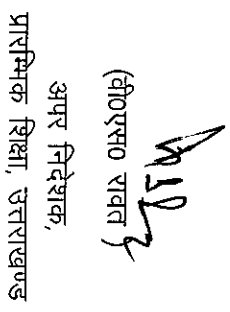 (वी०एस० रावत)
अपर निदेशक,
प्रारम्भिक शिक्षा, उत्तराखण्ड